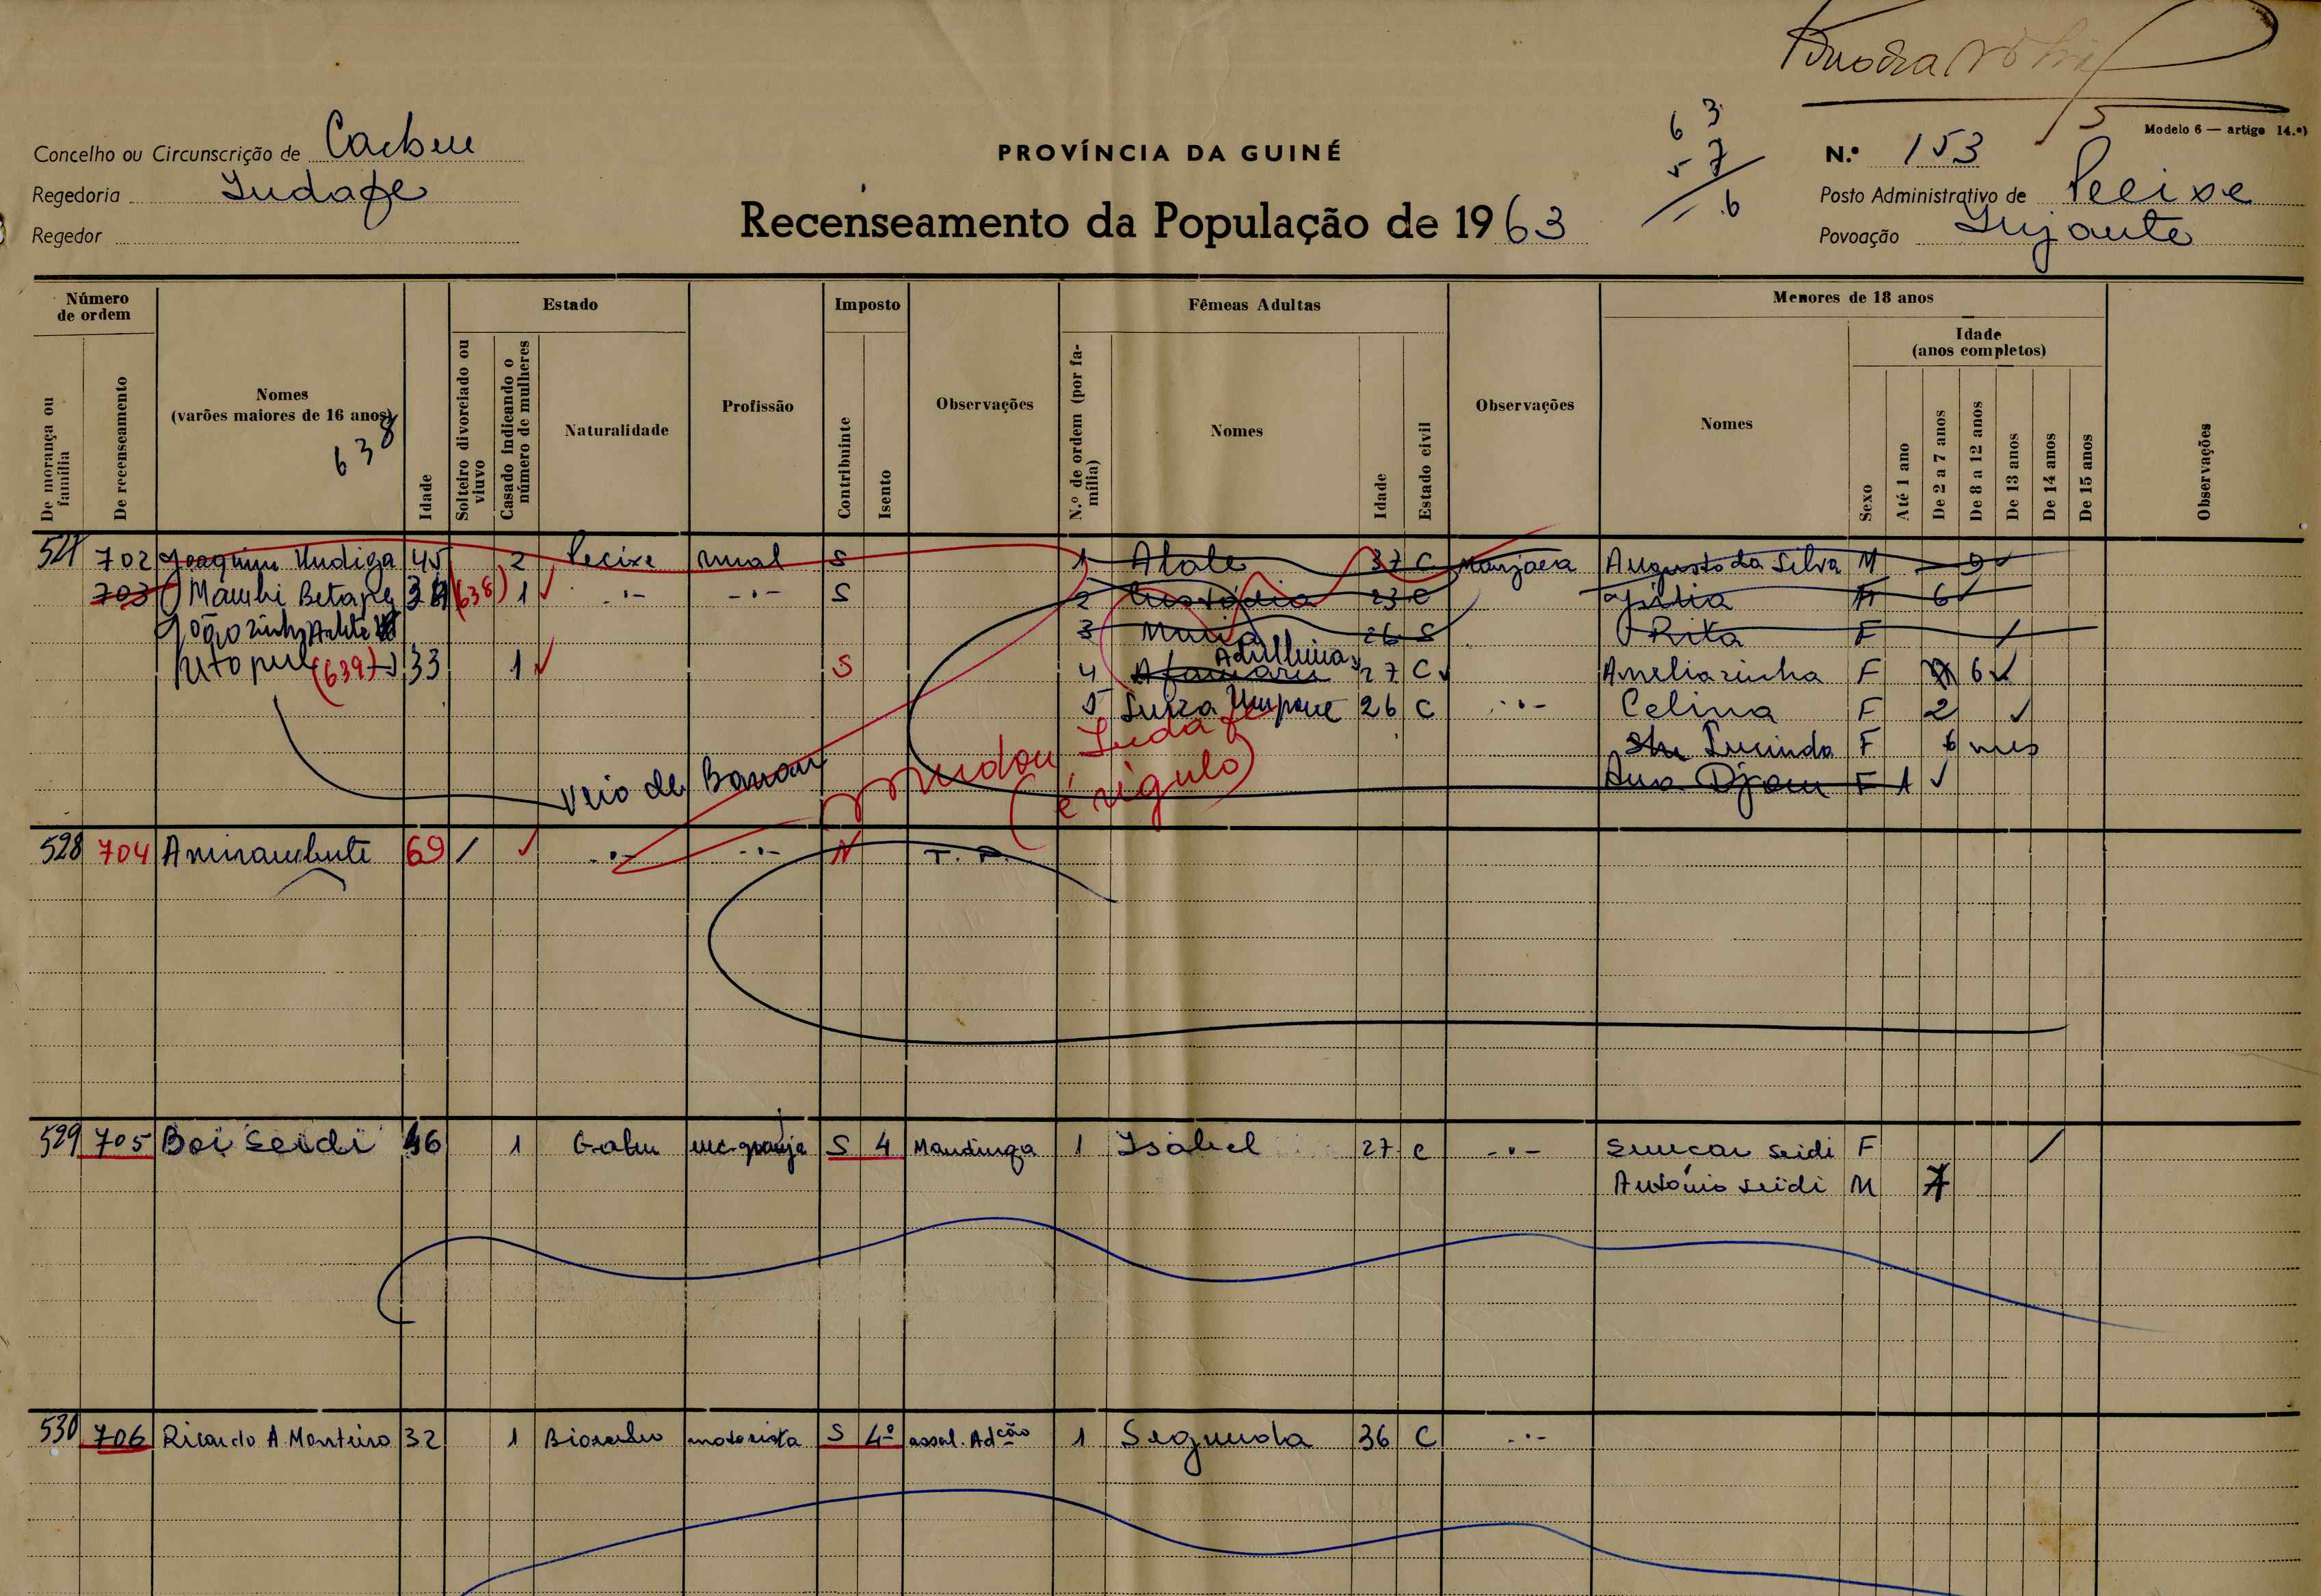 Modelo 6 — artigo 14.º)
Concelho ou Circunscrição de Cacheu
PROVÍNCIA DA GUINÉ
N.º 153
Regedoria
Posto Administrativo de Pecixe
Recenseamento da População de 1963
Regedor
Povoação
63
57
6
Número de ordem
Estado
Imposto
Fêmeas Adultas
Menores de 18 anos
Idade (anos completos)
De morança ou família
De recenseamento
Nomes (varões maiores de 16 anos)
638
Idade
Solteiro divorciado ou viuvo
Casado indicando o número de mulheres
Naturalidade
Profissão
Contribuinte
Isento
Observações
N.º de ordem (por família)
Nomes
Idade
Estado civil
Observações
Nomes
Sexo
Até 1 ano
De 2 a 7 anos
De 8 a 12 anos
De 13 anos
De 14 anos
De 15 anos
Observações
702 Joaquim 45 2 Pecixe rural S 1 37 C Manjaca Augusto da Silva M 9
703 (638) 1 -"- -"- S 2 Custódia 23 C 6
3 Maria 26 S Rita F
(639) 33 1 S 4 27 C Ameliazinha F 6
5 Luiza 26 C -"- Celina F 2
Lucinda F 6 mes
Veio de mudou
Ana F 1
(é régulo)
528 704 69 / -"- -"- N T. P.
529 705 Boi Seidi 46 1 Gabu S 4 Mandinga 1 Isabel 27 C -"- Seidi F /
António Seidi M 7
530 706 Ricardo A. Monteiro 32 1 Biombo motorista S 4º assal. Adção 1 Segunda 36 C -"-